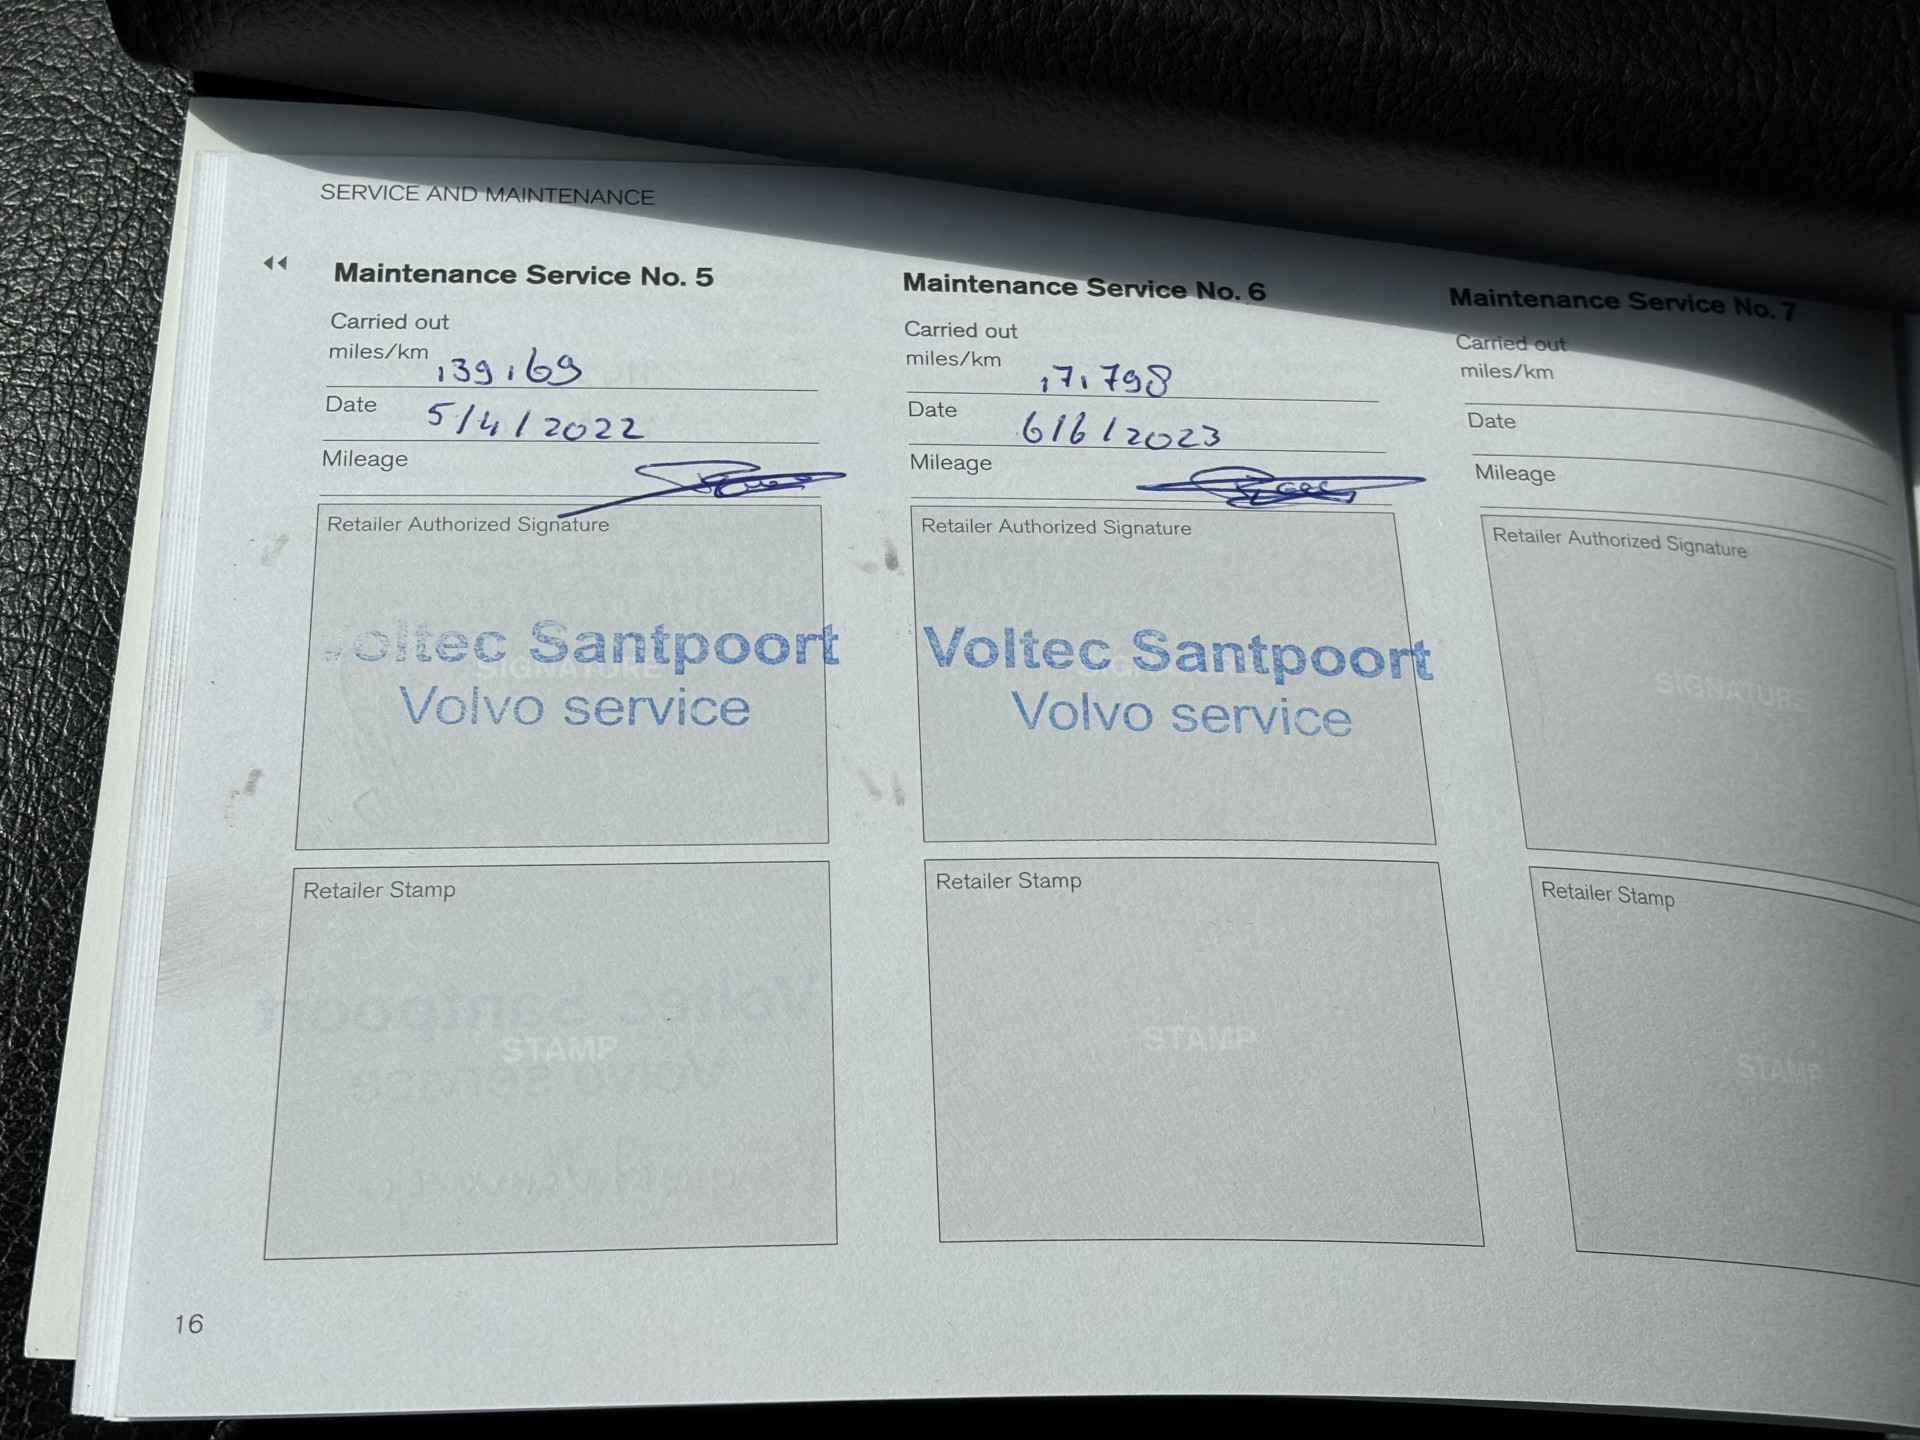 SERVICE AND MAINTENANCE
Maintenance Service No. 5
Carried out
miles/km 139.169
Date 5/4/2022
Mileage
Retailer Authorized Signature
SIGNATURE
Voltec Santpoort
Volvo service
Retailer Stamp
STAMP
Maintenance Service No. 6
Carried out
miles/km
Date 6/6/2023
Mileage
Retailer Authorized Signature
Voltec Santpoort
Volvo service
Retailer Stamp
STAMP
Maintenance Service No. 7
Carried out
miles/km
Date
Mileage
Retailer Authorized Signature
SIGNATURE
Retailer Stamp
STAMP
16